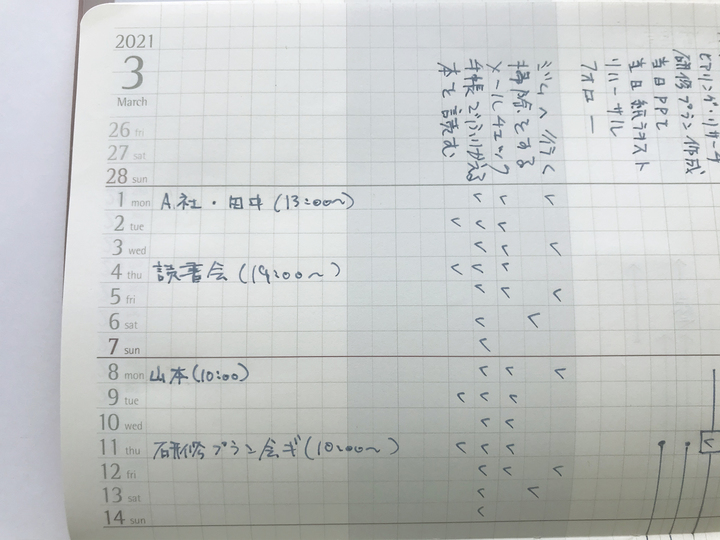 2021
3
March
本を読む
手帳でふりかえる
メールチェック
掃除をする
ジムへ行く
フォロー
リハーサル
当日紙テキスト
当日PPT
研修プラン作成
ヒアリング・リサーチ
26 fri
27 sat
28 sun
1 mon A社・田中(13:00〜)
2 tue
3 wed
4 thu 読書会(19:00〜)
5 fri
6 sat
7 sun
8 mon 山本(10:00)
9 tue
10 wed
11 thu 研修プラン会ギ(10:00〜)
12 fri
13 sat
14 sun